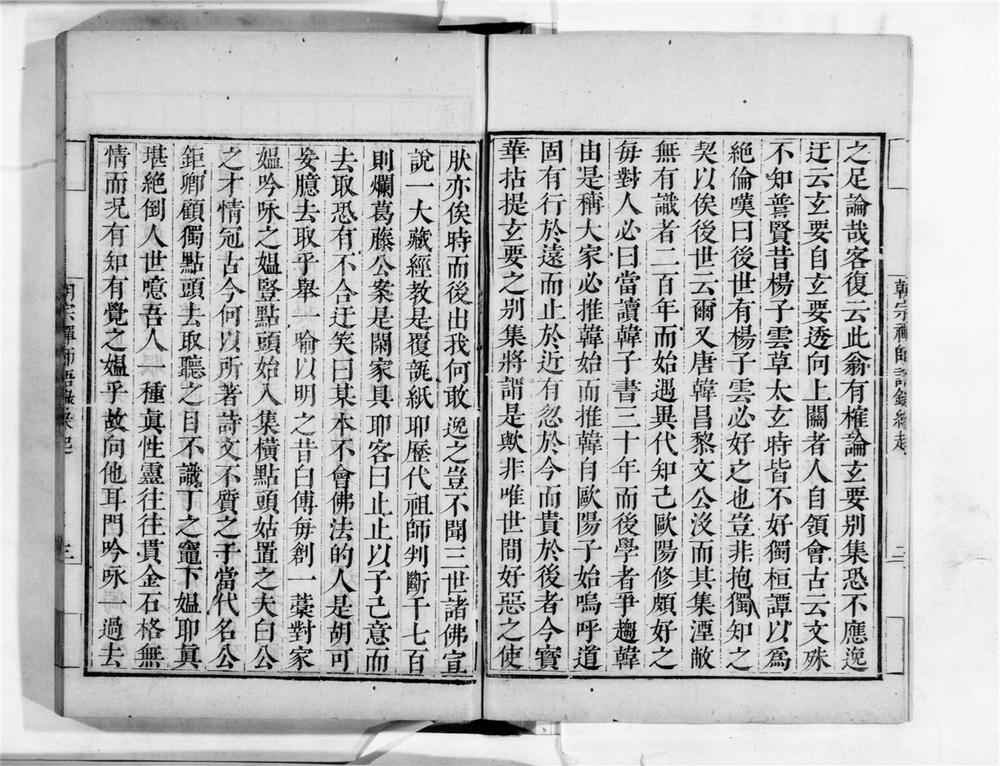 之足論哉客復云此翁有㩁論玄要別集恐不應逸
迂云玄要自玄要透向上關者人自領會古云文殊
不知普賢昔楊子雲草太玄時皆不好獨桓譚以為
絕倫嘆曰後世有楊子雲必好之也豈非抱獨知之
契以俟後世云爾又唐韓昌黎文公沒而其集湮敝
無有識者二百年而始遇異代知己歐陽修頗好之
每對人必曰當讀韓子書三十年而後學者爭趨韓
由是稱大家必推韓始而推韓自歐陽子始嗚呼道
固有行於遠而止於近有忽於今而貴於後者今寶
華拈提玄要之別集將謂是歟非唯世間好惡之使
肰亦俟時而後出我何敢逸之豈不聞三世諸佛宣
說一大藏經教是覆瓿紙耶歷代祖師判斷千七百
則爛葛藤公案是閑家具耶客曰止止以子己意而
去取恐有不合迂笑曰某本不會佛法的人是胡可
妄臆去取乎舉一喻以明之昔白傅每創一藁對家
媼吟咏之媼豎點頭始入集橫點頭姑置之夫白公
之才情冠古今何以所著詩文不質之于當代名公
鉅卿顧獨點頭去取聽之目不識丁之竈下媼耶眞
堪絕倒人世噫吾人一種眞性靈往往貫金石格無
情而況有知有覺之媼乎故向他耳門吟咏一過去